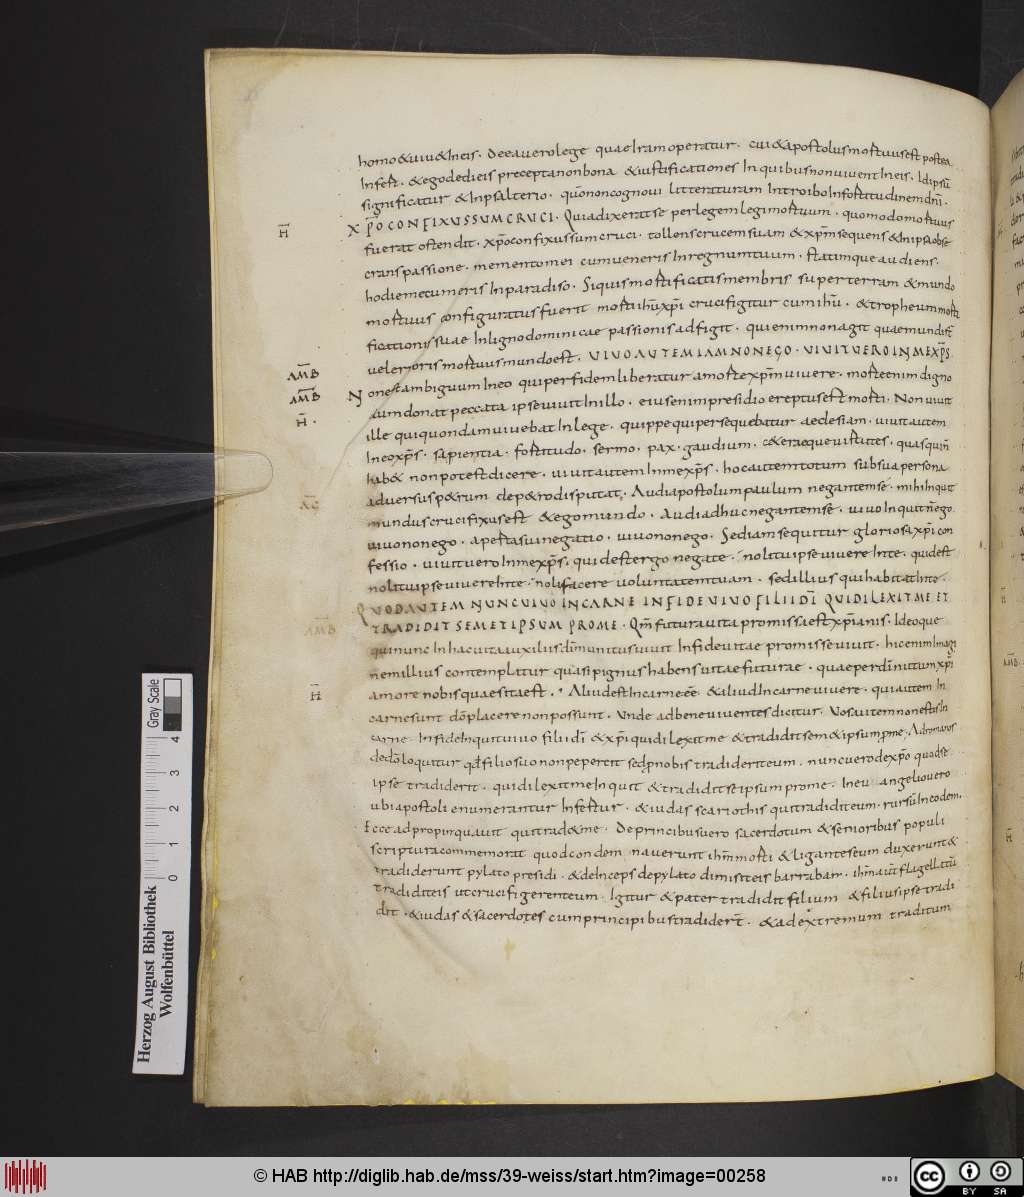 homo & uiu& In eis. De ea uero lege quae Iram operatur. cui & apostolus mortuus est postea
Infert. & ego dedi eis precepta non bona & iustificationes In quibus non uiuent In eis. Id ipsū
significatur & In psalterio. qūo non cognoui litteraturam Introibo In fortitudinem dn̄i.
H̄
XP̄O CONFIXUS SUM CRUCI. Quia dixerat se per legem legi mortuum. quomodo mortuus
fuerat ostendit. xp̄o confixus sum cruci. tollens crucem suam & xp̄m sequens & In ipsa obse
crans passione. memento mei cum ueneris In regnum tuum. statimque audiens.
hodie mecum eris In paradiso. Si quis mortificatis membris super terram & mundo
mortuus configuratus fuerit morti ih̄u xp̄i crucifigitur cum ih̄u. & tropheum morti
ficationis suae In ligno dominicae passionis adfigit. qui enim non agit quae mundi st̄
ueler oris mortuus mundo est. UIUO AUTEM IAM NON EGO. UIUIT UERO IN ME XP̄S.
AM̄B
AM̄B
H̄.
Non est ambiguum In eo qui per fidem liberatur a morte xp̄m uiuere. morte enim digno
cum donat peccata ipse uiuit In illo. eius enim presidio ereptus est morti. Non uiuit
ille qui quondam uiuebat In lege. quippe qui persequebatur aeclesiam. uiuit autem
In eo xp̄s. sapientia. fortitudo. sermo. pax. gaudium. c&eraeque uirtutes. quas qui n̄
hab& non potest dicere. uiuit autem In me xp̄s. hoc autem totum sub sua persona
AḠ
aduersus p&rum de p&ro disputat. Audi apostolum paulum negantem sé. mihi Inquit
mundus crucifixus est & ego mundo. Audi adhuc negantem se. uiuo Inquit n̄ ego.
uiuo non ego. aperta sui negatio. uiuo non ego. Sed iam sequitur gloriosa xp̄i con
fessio. uiuit uero In me xp̄s. quid est ergo negate. noli tu ipse uiuere In te. quid est
noli tu ipse uiuere In te. noli facere uoluntatem tuam. sed illius qui habitat In te.
QUOD AUTEM NUNC UIUO IN CARNE IN FIDE UIUO FILII DĪ QUI DILEXIT ME ET
AM̄B
TRADIDIT SEMETIPSUM PRO ME. Qm̄ futura uita promissa est xp̄ianis. Ideoque
qui nunc In hac uita auxilius dīm unitus uiuit In fide uitae promisse uiuit. hic enim Imagi
nem illius contemplatur quasi pignus habens uitae futurae. quae per dn̄i nutum xp̄i
H̄
amore nobis quaesita est. Aliud est In carne eē & aliud In carne uiuere. qui autem In
carne sunt dō placere non possunt. Unde ad bene uiuentes dicitur. Uos autem non estis In
carne. In fide Inquit uiuo filii dī & xp̄i qui dilexit me & tradidit sem&ipsum p me.
dedō loquitur qd filio suo non pepercit sed p nobis tradiderit eum. nunc uero de xp̄o quod se
ipse tradiderit. qui dilexit me Inquit & tradidit se ipsum pro me. In euangelio uero
ubi apostoli enumerantur Infertur. & iudas scariothis qui tradidit eum. rursū In eodem.
Ecce adpropinquauit qui trad& me. De principibus uero sacerdotum & senioribus populi
scriptura commemorat quod condemnauerunt ih̄m morti & ligantes eum duxerunt &
tradiderunt pylato presidi. & deInceps de pylato dimisit eis barraban. ih̄m aut̄ flagellatū
tradidit eis ut crucifigerent eum. Igitur & pater tradidit filium & filius ipse tradi
dit. & iudas & sacerdotes cum principibus tradider̄. & ad extremum traditum
Herzog August Bibliothek
Wolfenbüttel
0 1 2 3 4
Gray Scale
© HAB http://diglib.hab.de/mss/39-weiss/start.htm?image=00258
cc BY SA